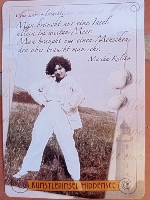 Man braucht nur eine Insel
allein im weiten Meer.
Man braucht nur einen Menschen,
den aber braucht man sehr.
Mascha Kaléko
KÜNSTLERINSEL HIDDENSEE